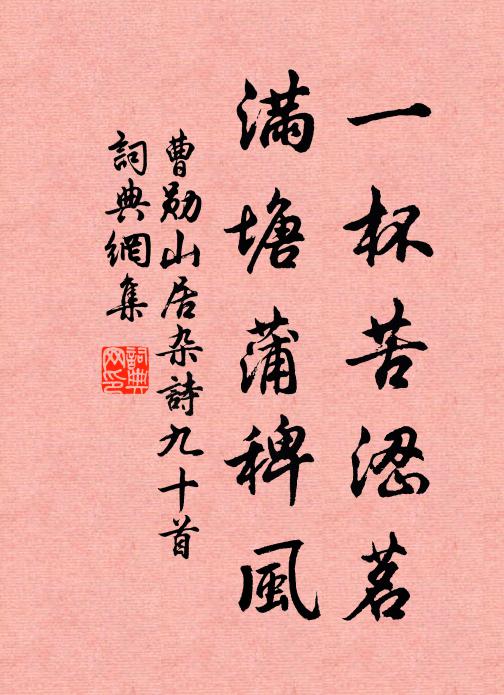 一杯苦涩茗
满塘蒲稗風
曹勋山居杂詩九十首
詞典網集
詞典
网印